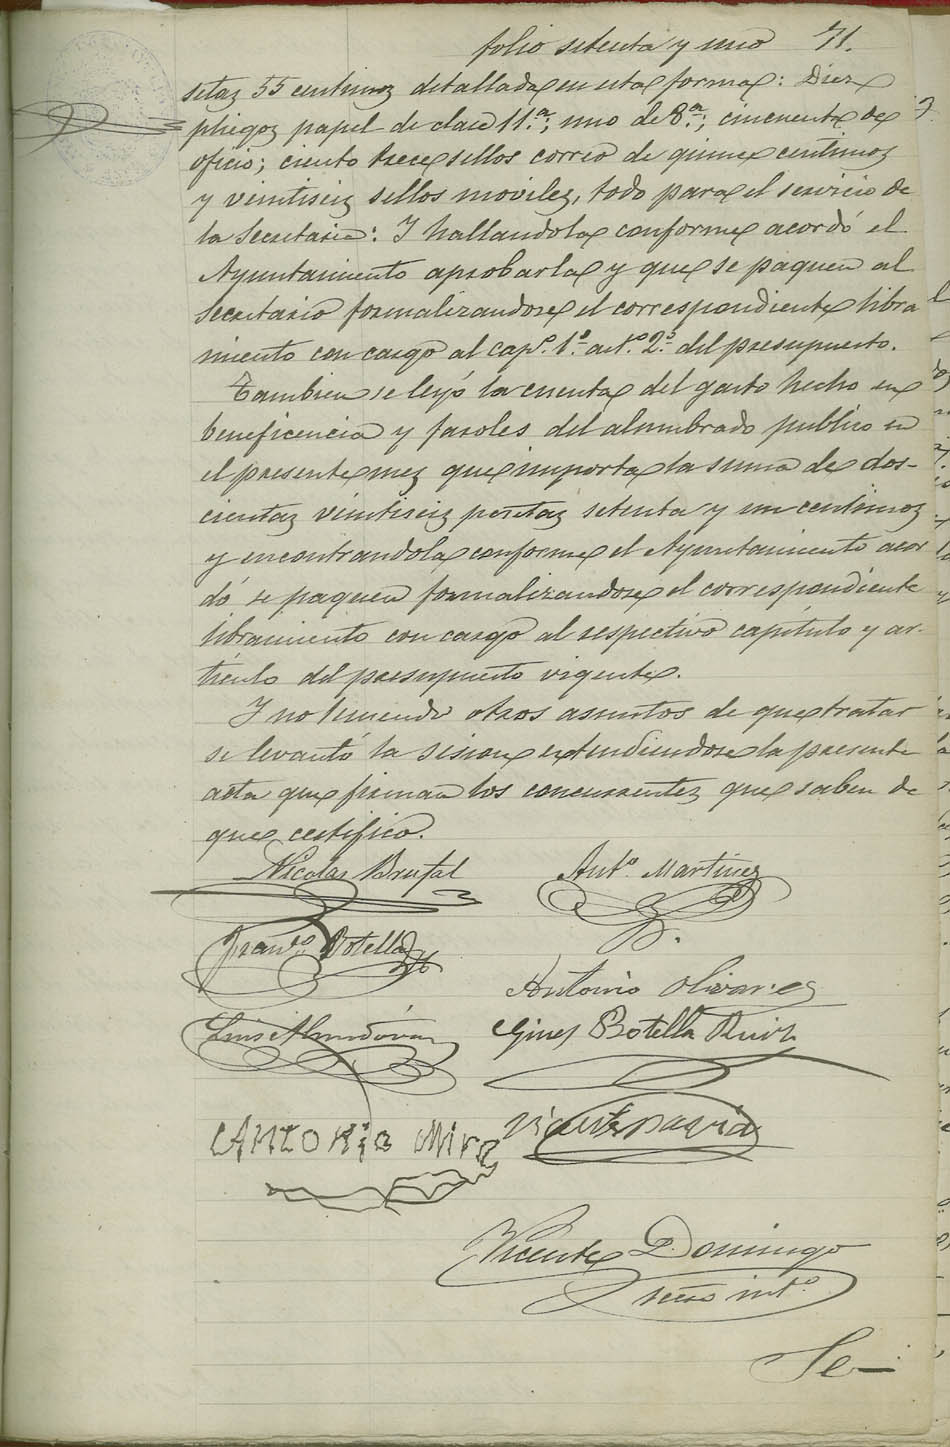 folio setenta y uno 71.
setas 55 centimos detallada en esta forma: Diez
pliegos papel de clase 11.ª; uno de 8.ª; cincuenta de
oficio; ciento trece sellos correo de quince centimos
y veintiseis sellos moviles, todo para el servicio de
la Secretaria: Y hallandola conforme acordó el
Ayuntamiento aprobarla y que se paguen al
Secretario formalizandose el correspondiente libra
miento con cargo al cap.º 1.º art.º 2.º del presupuesto.
Tambien se leyó la cuenta del gasto hecho en
beneficencia y faroles del alumbrado publico en
el presente mes que importa la suma de dos-
cientas veintiseis pesetas setenta y un centimos
y encontrandola conforme el Ayuntamiento acor
dó se paguen formalizandose el correspondiente
libramiento con cargo al respectivo capitulo y ar-
ticulo del presupuesto vigente.
Y no teniendo otros asuntos de que tratar
se levantó la sesion extendiendose la presente
acta que firman los concurrentes que saben de
que certifico.
Nicolas Brufal Ant.º Martinez
Fran.co Botella
Antonio Olivares
Luis Almodóvar Gines Botella Ruiz
ANTONIO Mira Vicente Pavia
Vicente Domingo
srio int.º
Se-